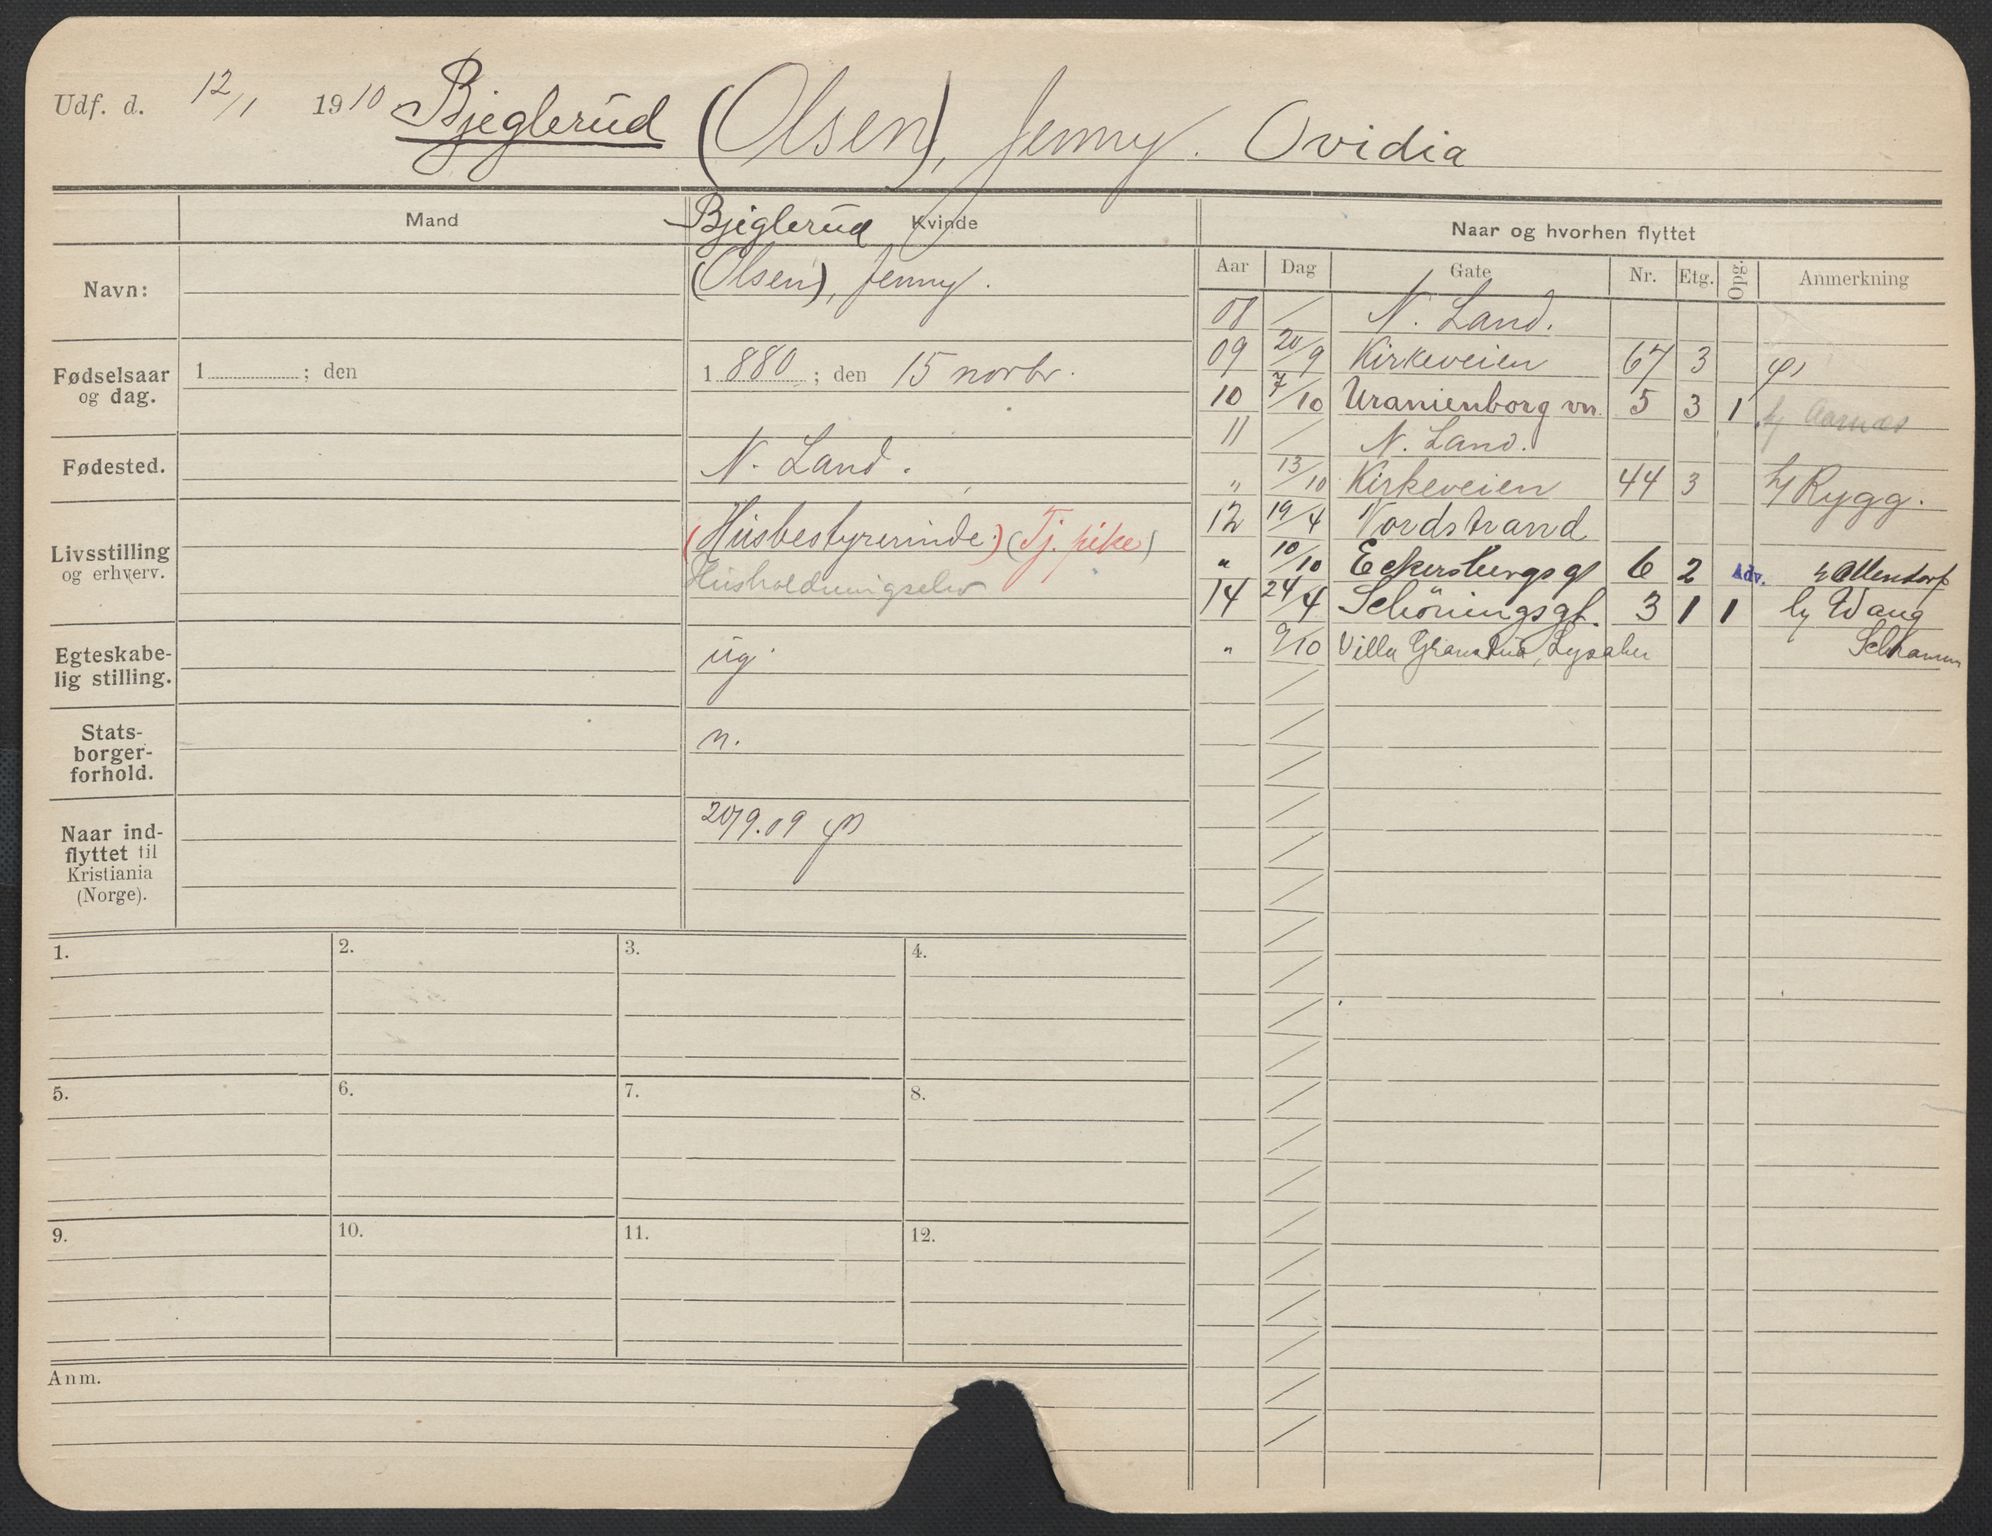 Udf. d. 12/1 1910 Bjeglerud (Olsen), Jenny. Ovidia
Mand
Bjeglerud Kvinde
Navn:
(Olsen), Jenny.
Fødselsaar og dag.
1 ; den
1 880 ; den 15 novbr.
Fødested.
N. Land.
Livsstilling og erhverv.
(Husbestyrerinde.) (Tj. pike)
Husholdningselev
Egteskabe-
lig stilling.
ug.
Stats-
borger-
forhold.
n.
Naar ind-
flyttet til
Kristiania
(Norge).
20/9.09
Naar og hvorhen flyttet
Aar Dag Gate Nr. Etg. Opg. Anmerkning
08 / N. Land.
09 20/9 Kirkeveien 67 3
10 7/10 Uranienborg vn. 5 3 1 hj Aarnæs
11 / N. Land.
" 13/10 Kirkeveien 44 3 hj Rygg.
12 19/4 Nordstrand
" 10/10 Eckersbergsgt 6 2 Adv. Ollendorf
14 24/4 Schöningsgt. 3 1 1 hj Wang
" 9/10 Villa Lysaker
1.
2.
3.
4.
5.
6.
7.
8.
9.
10.
11.
12.
Anm.